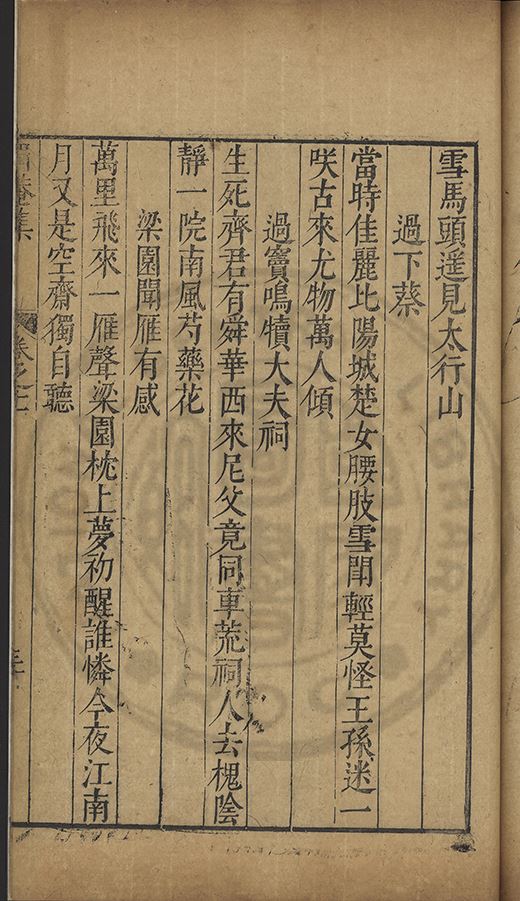 雪馬頭遥見太行山
過下蔡
當時佳麗比陽城楚女腰肢雪閒輕莫怪王孫迷一
咲古來尤物萬人傾
過竇鳴犢大夫祠
生死齊君有舜華西來尼父竟同車荒祠人去槐陰
靜一院南風芍藥花
梁園聞雁有感
萬里飛來一雁聲梁園枕上夢初醒誰憐今夜江南
月又是空齋獨自聽
卷之